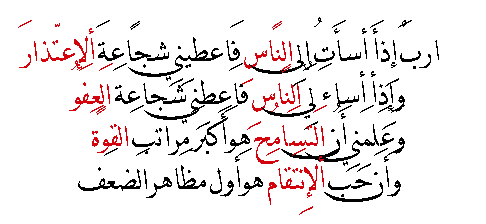 ارب إذا أسأت إلى الناس فاعطيني شجاعة الإعتذار
وإذا أساء لي الناس فاعطني شجاعة العفو
وعلمني أن التسامح هو أكبر مراتب القوة
وأن حب الإنتقام هو أول مظاهر الضعف